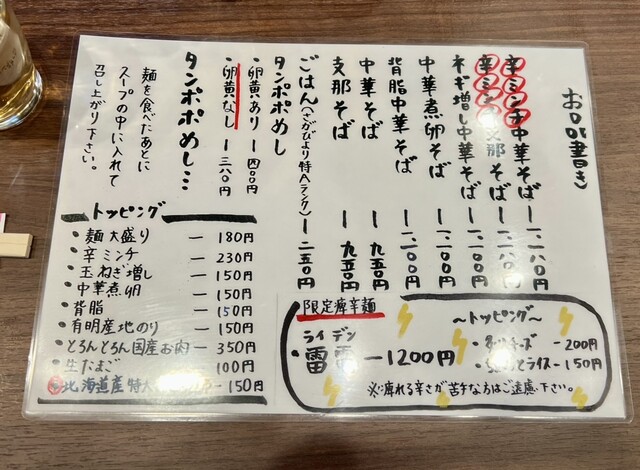 お品書き
辛ミンチ中華そば 一、一八〇円
辛ミンチ支那そば 一、一八〇円
ネギ増し中華そば 一、一〇〇円
中華煮卵そば 一、一〇〇円
背脂中華そば 一、一〇〇円
中華そば 一 九五〇円
支那そば 一 九五〇円
ごはん(さがびより特Aランク) 一 二五〇円
タンポポめし
・卵黄あり 一 四〇〇円
・卵黄なし 一 三八〇円
タンポポめし…
麺を食べたあとに
スープの中に入れて
召し上がり下さい。
トッピング
・麺大盛り — 180円
・辛ミンチ — 230円
・玉ねぎ増し — 150円
・中華煮卵 — 150円
・背脂 — 150円
・有明産地のり — 150円
・とろんとろん国産お肉 — 350円
・生たまご 100円
北海道産特大 — 150円
限定痺辛麺
ライデン
雷電 — 1200円
～トッピング～
チーズ — 200円
ライス — 150円
※痺れる辛さが苦手な方はご遠慮下さい。